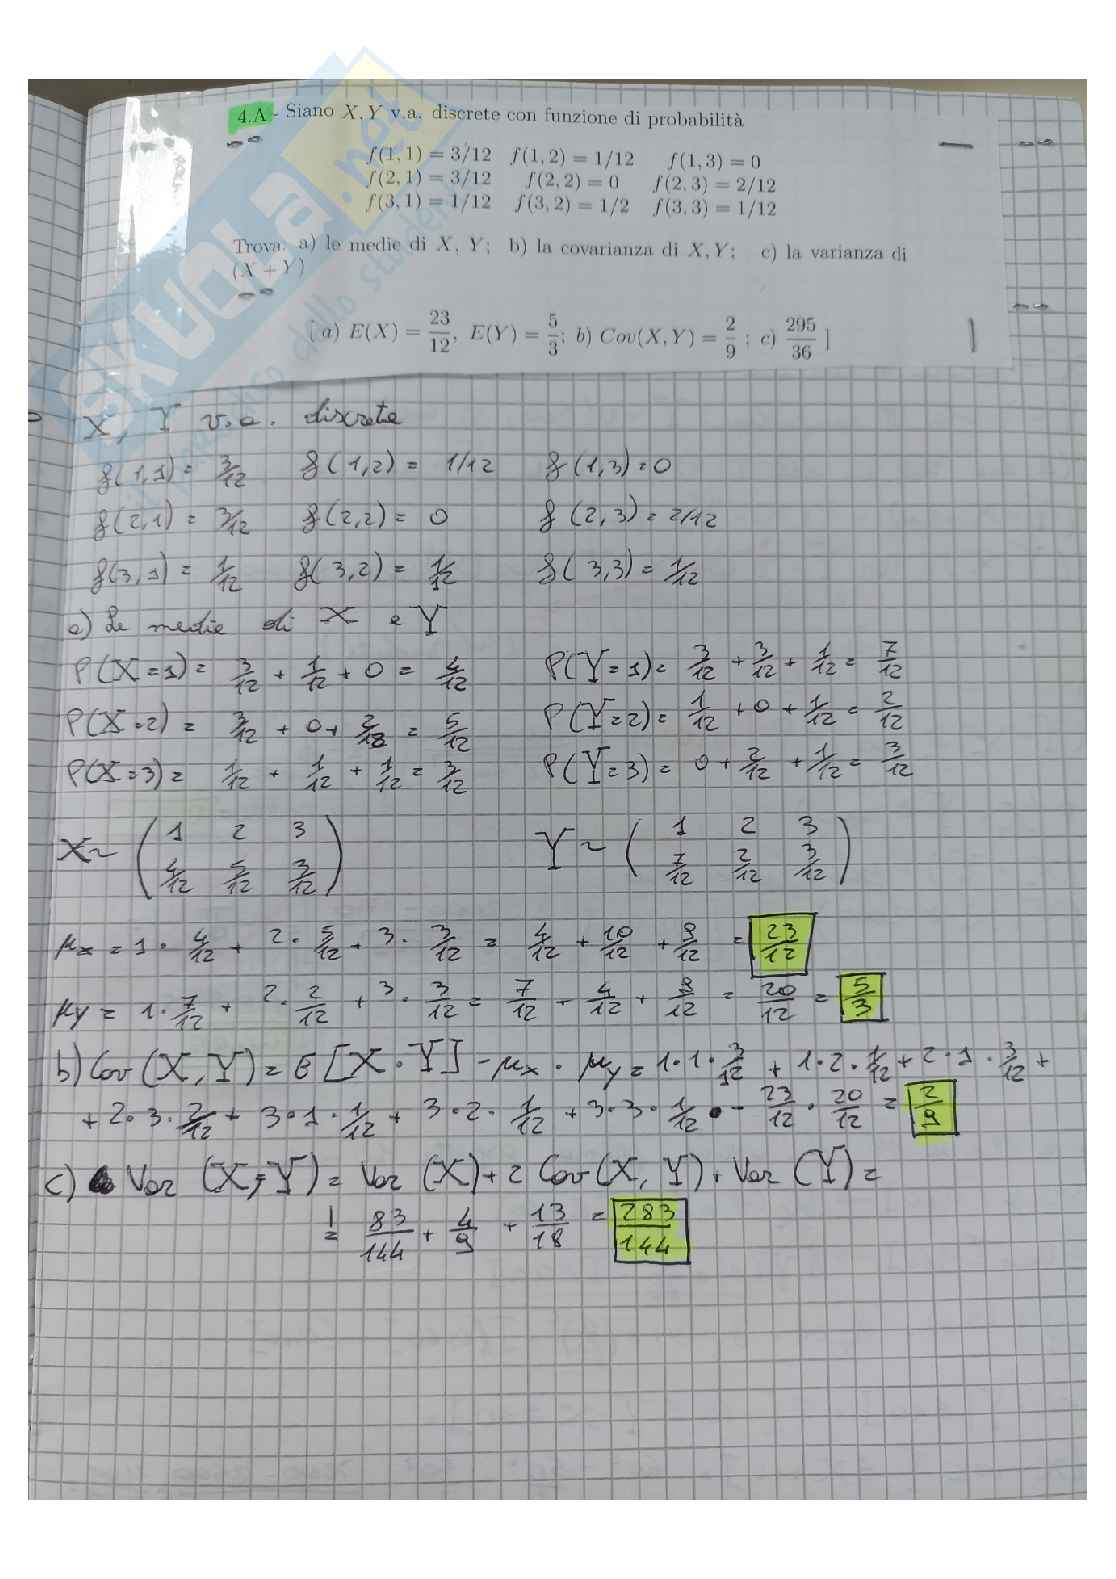 4.A - Siano X, Y v.a. discrete con funzione di probabilità
f(1,1) = 3/12 f(1,2) = 1/12 f(1,3) = 0
f(2,1) = 3/12 f(2,2) = 0 f(2,3) = 2/12
f(3,1) = 1/12 f(3,2) = 1/2 f(3,3) = 1/12
Trova: a) le medie di X, Y; b) la covarianza di X, Y; c) la varianza di
(X + Y)
[ a) E(X) = 23/12, E(Y) = 5/3; b) Cov(X,Y) = 2/9 ; c) 295/36 ]
SKUOLA.net
X, Y v.a. discrete
f(1,1) = 3/12 f(1,2) = 1/12 f(1,3) = 0
f(2,1) = 3/12 f(2,2) = 0 f(2,3) = 2/12
f(3,1) = 1/12 f(3,2) = 1/12 f(3,3) = 1/12
a) Le medie di X e Y
P(X=1) = 3/12 + 1/12 + 0 = 4/12 P(Y=1) = 3/12 + 3/12 + 1/12 = 7/12
P(X=2) = 3/12 + 0 + 2/12 = 5/12 P(Y=2) = 1/12 + 0 + 1/12 = 2/12
P(X=3) = 1/12 + 1/12 + 1/12 = 3/12 P(Y=3) = 0 + 2/12 + 1/12 = 3/12
X ~ ( 1 2 3 Y ~ ( 1 2 3
4/12 5/12 3/12 ) 7/12 2/12 3/12 )
μx = 1 · 4/12 + 2 · 5/12 + 3 · 3/12 = 4/12 + 10/12 + 9/12 = 23/12
μy = 1 · 7/12 + 2 · 2/12 + 3 · 3/12 = 7/12 + 4/12 + 9/12 = 20/12 = 5/3
b) Cov(X,Y) = E[X·Y] - μx · μy = 1·1·3/12 + 1·2·1/12 + 2·1·3/12 +
+ 2·3·2/12 + 3·1·1/12 + 3·2·1/12 + 3·3·1/12 - 23/12 · 20/12 = 2/9
c) Var (X+Y) = Var (X) + 2 Cov(X,Y) + Var (Y) =
= 83/144 + 4/9 + 13/18 = 283/144